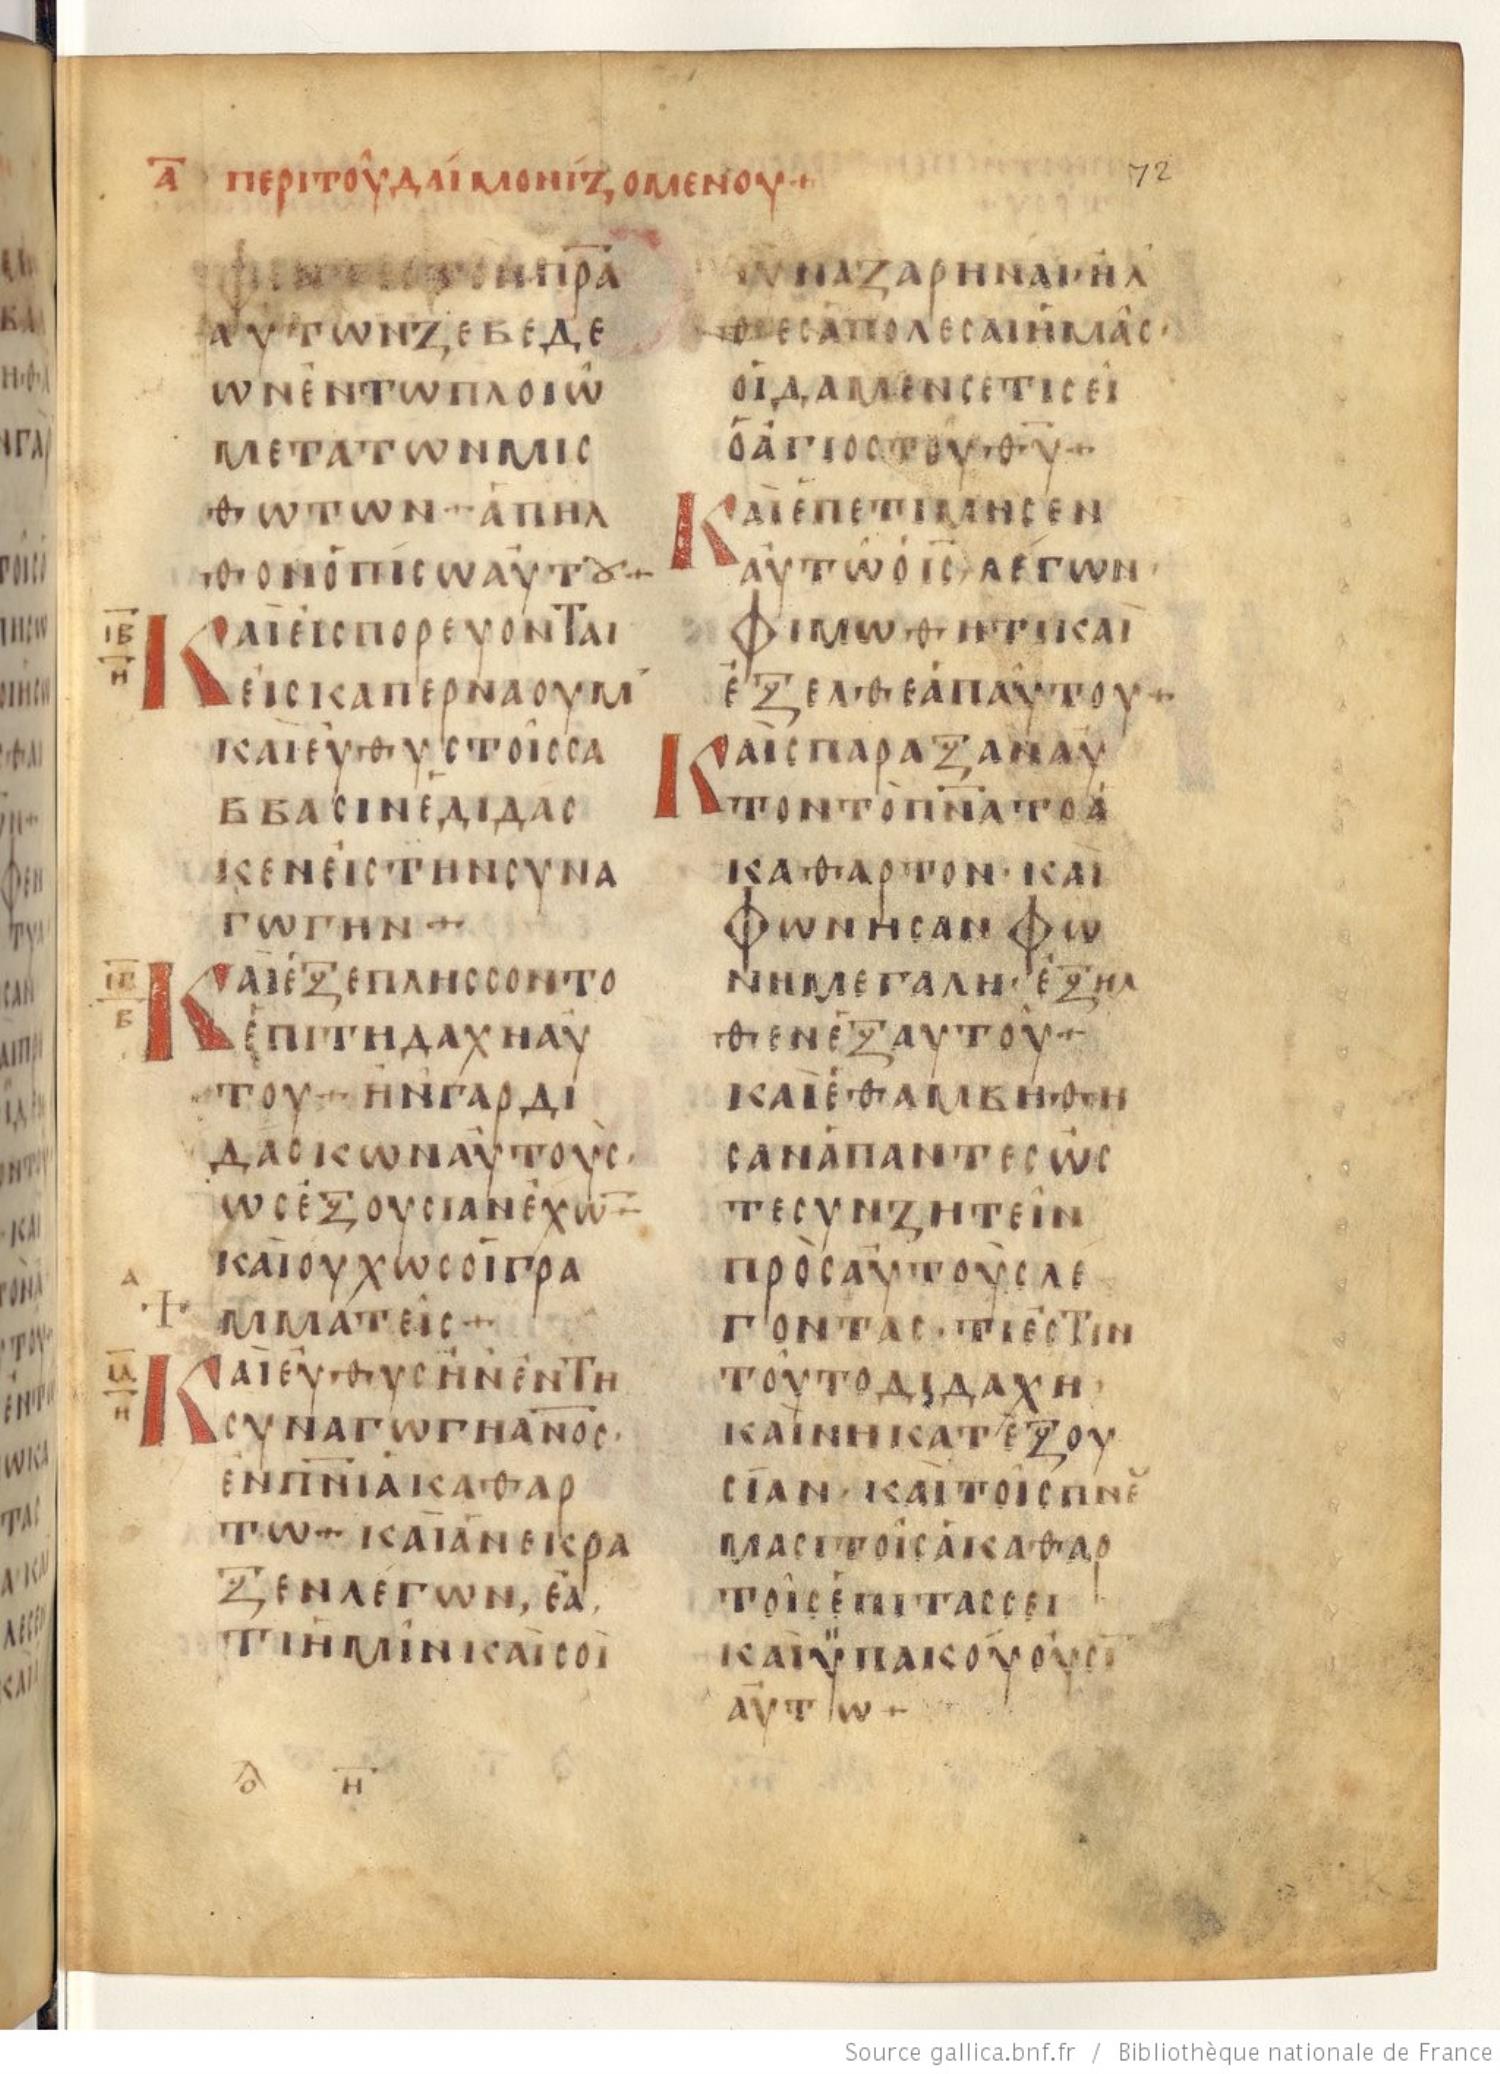 Α ΠΕΡΙ ΤΟΥ ΔΑΙΜΟΝΙΖΟΜΕΝΟΥ+
72
ΠΡΑ
ΑΥΤΩΝΖΕΒΕΔΕ
ΩΝΕΝΤΩΠΛΟΙΩ
ΜΕΤΑΤΩΝΜΙC
ΘΩΤΩΝ+ΑΠΗΛ
ΘΟΝΟΠΙCΩΑΥΤȢ+
ΙΒ
Η
ΚΑΙΕΙCΠΟΡΕΥΟΝΤΑΙ
ΕΙCΚΑΠΕΡΝΑΟΥΜ
ΚΑΙΕΥΘΥCΤΟΙCCΑ
ΒΒΑCΙΝΕΔΙΔΑC
ΚΕΝΕΙCΤΗΝCΥΝΑ
ΓΩΓΗΝ+
Β
ΚΑΙΕΞΕΠΛΗCCΟΝΤΟ
ΕΠΙΤΗΔΑΧΗΑΥ
ΤΟΥ+ΗΝΓΑΡΔΙ
ΔΑCΚΩΝΑΥΤΟΥC·
ΩCΕΞΟΥCΙΑΝΕΧΩ̅
ΚΑΙΟΥΧΩCΟΙΓΡΑ
ΜΜΑΤΕΙC+
ΙΔ
Η
ΚΑΙΕΥΘΥCΗΝΕΝΤΗ
CΥΝΑΓΩΓΗΑ̅Ν̅Ο̅C·
ΕΝΠ̅Ν̅ΙΑΚΑΘΑΡ
ΤΩ+ΚΑΙΑΝΕΚΡΑ
ΞΕΝΛΕΓΩΝ,ΕΑ,
ΤΙΗΜΙΝΚΑΙCΟΙ
Η
Ι̅Υ̅ΝΑΖΑΡΗΝΑΙ·ΗΛ
ΘΕCΑΠΟΛΕCΑΙΗΜΑC·
ΟΙΔΑΜΕΝCΕΤΙCΕΙ
ΟΑΓΙΟCΤΟΥΘ̅Υ̅+
ΚΑΙΕΠΕΤΙΜΗCΕΝ
ΑΥΤΩΟΙ̅C̅ΛΕΓΩΝ·
ΦΙΜΩΘΗΤΙΚΑΙ
ΕΞΕΛΘΕΑΠΑΥΤΟΥ+
ΚΑΙCΠΑΡΑΞΑΝΑΥ
ΤΟΝΤΟΠ̅Ν̅Α̅ΤΟΑ
ΚΑΘΑΡΤΟΝ·ΚΑΙ
ΦΩΝΗCΑΝΦΩ
ΝΗΜΕΓΑΛΗ·ΕΞΗΛ
ΘΕΝΕΞΑΥΤΟΥ+
ΚΑΙΕΘΑΜΒΗΘΗ
CΑΝΑΠΑΝΤΕCΩC
ΤΕCΥΝΖΗΤΕΙΝ
ΠΡΟCΑΥΤΟΥCΛΕ
ΓΟΝΤΑC·ΤΙΕCΤΙΝ
ΤΟΥΤΟΔΙΔΑΧΗ·
ΚΑΙΝΗΚΑΤΕΞΟΥ
CΙΑΝ·ΚΑΙΤΟΙCΠΝΕΥ
ΜΑCΙΤΟΙCΑΚΑΘΑΡ
ΤΟΙCΕΠΙΤΑCCΕΙ
ΚΑΙΫΠΑΚΟΥΟΥCΙ̅
ΑΥΤΩ+
Source gallica.bnf.fr / Bibliothèque nationale de France